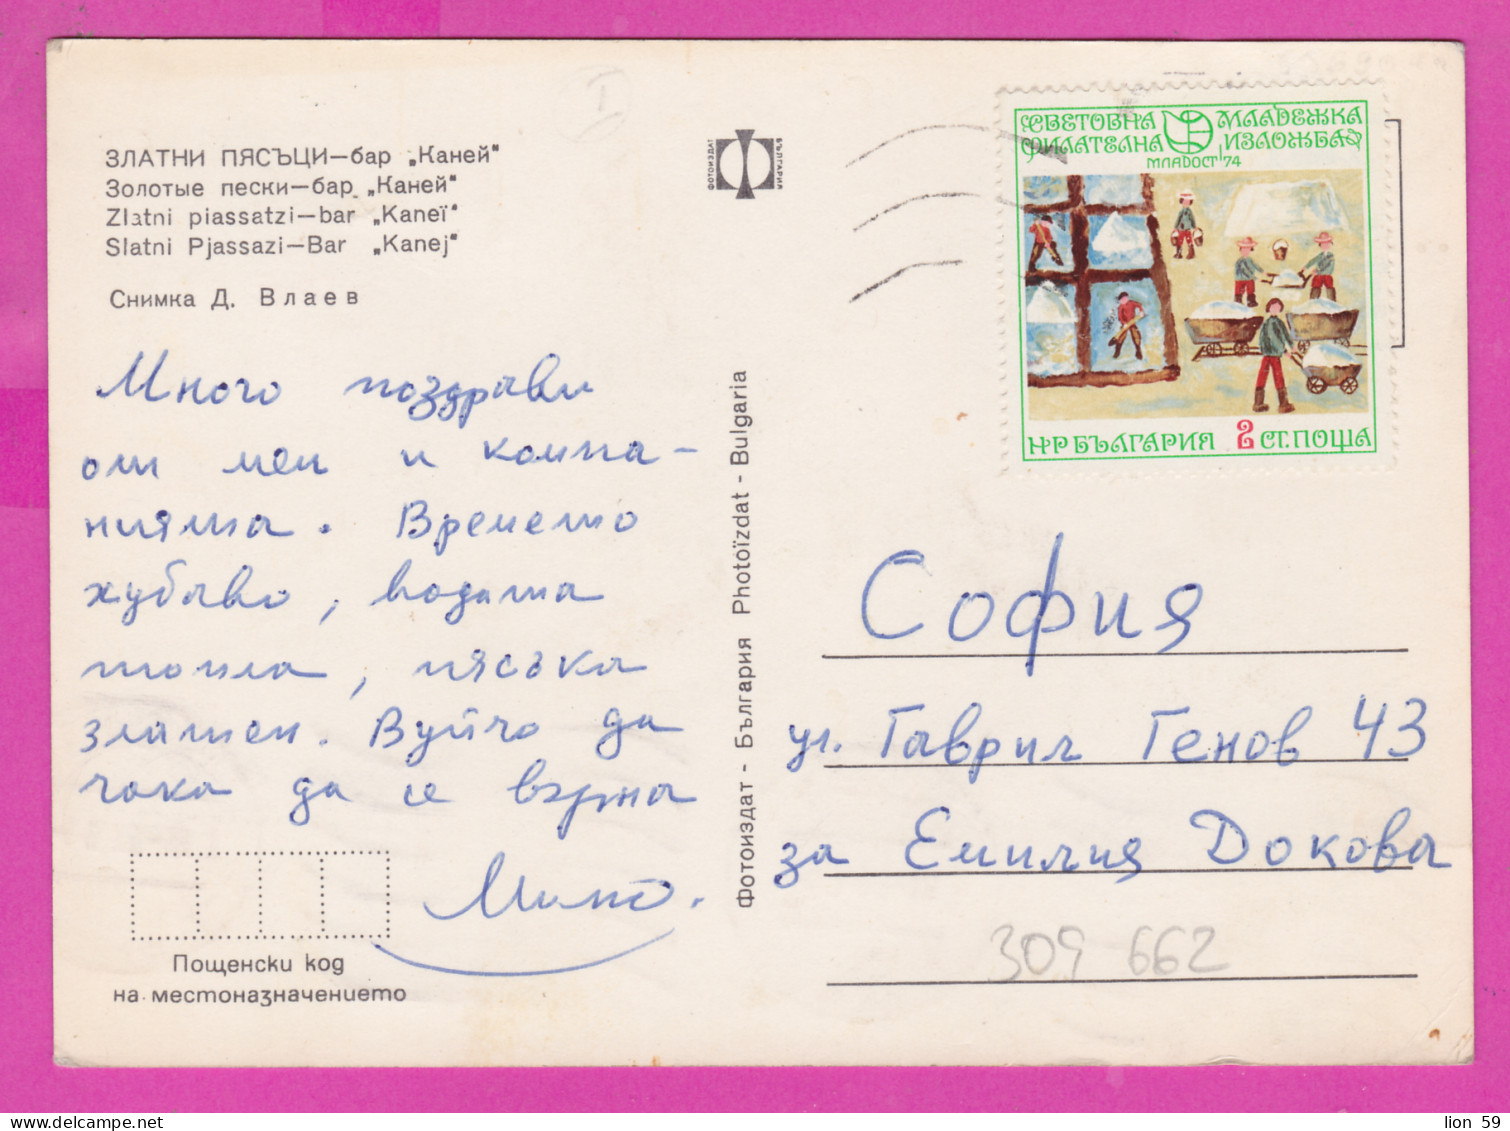 ЗЛАТНИ ПЯСЪЦИ—бар „Каней"
Золотые пески—бар „Каней"
Zlatni piassatzi—bar „Kaneï"
Slatni Pjassazi—Bar „Kanej"
Снимка Д. Влаев
Много поздрави
от мен и компа-
нията. Времето
хубаво, водата
топла, пясъка
златен. Вуйчо да
чака да се върна
Мито.
Пощенски код
на местоназначението
ФОТОИЗДАТ
БЪЛГАРИЯ
Фотоиздат - България Photoïzdat - Bulgaria
СВЕТОВНА МЛАДЕЖКА
ФИЛАТЕЛНА ИЗЛОЖБА
МЛАДОСТ '74
НР БЪЛГАРИЯ 2 СТ. ПОЩА
София
ул. Гаврил Генов 43
за Емилия Докова
309 662
lion 59